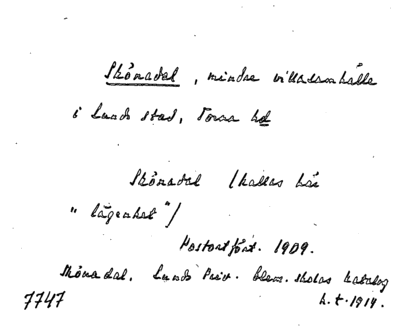 Skönadal, mindre villasamhälle
i Lunds stad, Torna hd
Skönadal (kallas här
"lägenhet")
Postortfört. 1909.
Skönadal. Lunds Priv. Elem. skolas katalog
7747 h.t. 1914.